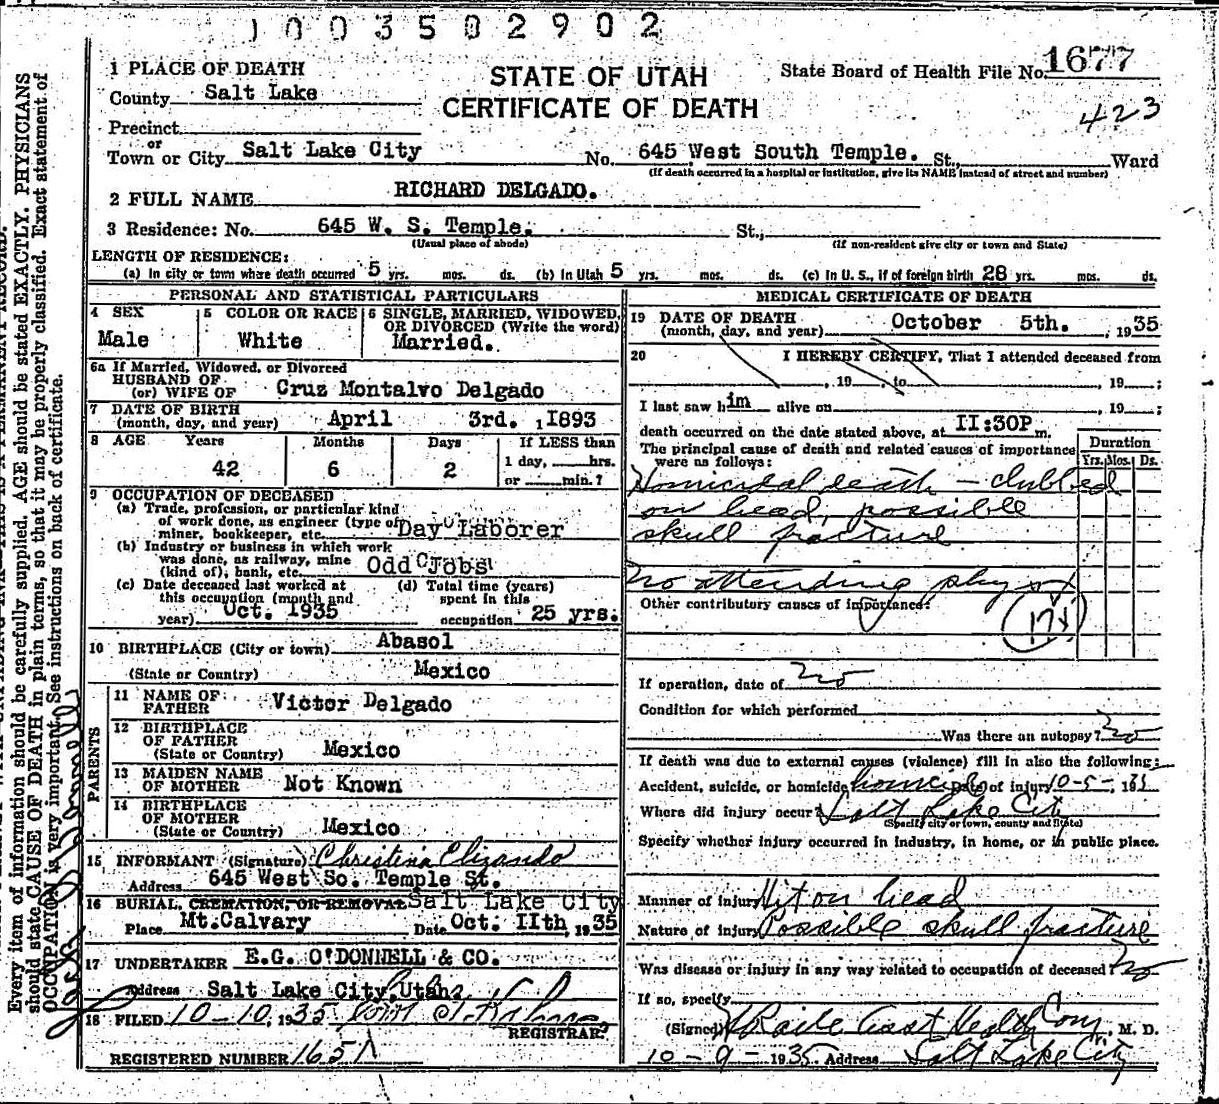 1003502902
1 PLACE OF DEATH
STATE OF UTAH
CERTIFICATE OF DEATH
State Board of Health File No. 1677
423
County Salt Lake
Precinct
or
Town or City Salt Lake City No. 645 West South Temple. St., Ward
(If death occurred in a hospital or institution, give its NAME instead of street and number)
2 FULL NAME RICHARD DELGADO.
3 Residence: No. 645 W. S. Temple. St.,
(Usual place of abode) (If non-resident give city or town and State)
LENGTH OF RESIDENCE:
(a) In city or town where death occurred 5 yrs. mos. ds. (b) In Utah 5 yrs. mos. ds. (c) In U. S., if of foreign birth 28 yrs. mos. ds.
PERSONAL AND STATISTICAL PARTICULARS
4 SEX 5 COLOR OR RACE 6 SINGLE, MARRIED, WIDOWED,
OR DIVORCED (Write the word)
Male White Married.
6a If Married, Widowed, or Divorced
HUSBAND OF
(or) WIFE OF Cruz Montalvo Delgado
7 DATE OF BIRTH
(month, day, and year) April 3rd. , 1893
8 AGE Years Months Days If LESS than
42 6 2 1 day, hrs.
or min. ?
9 OCCUPATION OF DECEASED
(a) Trade, profession, or particular kind
of work done, as engineer (type of
miner, bookkeeper, etc. Day Laborer
(b) Industry or business in which work
was done, as railway, mine
(kind of), bank, etc. Odd Jobs
(c) Date deceased last worked at (d) Total time (years)
this occupation (month and spent in this
year) Oct. 1935 occupation 25 yrs.
10 BIRTHPLACE (City or town) Abasol
(State or Country) Mexico
PARENTS
11 NAME OF
FATHER Victor Delgado
12 BIRTHPLACE
OF FATHER
(State or Country) Mexico
13 MAIDEN NAME
OF MOTHER Not Known
14 BIRTHPLACE
OF MOTHER
(State or Country) Mexico
15 INFORMANT (Signature) Christina Elizando
Address 645 West So. Temple St.
16 BURIAL, CREMATION, OR REMOVAL Salt Lake City
Place Mt. Calvary Date Oct. IIth, 1935
17 UNDERTAKER E.G. O'DONNELL & CO.
Address Salt Lake City, Utah.
18 FILED 10-10, 1935
REGISTRAR
REGISTERED NUMBER 1651
MEDICAL CERTIFICATE OF DEATH
19 DATE OF DEATH
(month, day, and year) October 5th. , 1935
20 I HEREBY CERTIFY, That I attended deceased from
, 19 , to , 19 ;
I last saw him alive on , 19 ;
death occurred on the date stated above, at II:30P m.
The principal cause of death and related causes of importance
were as follows:
Duration
Yrs. Mos. Ds.
Homicidal death - clubbed
on head, possible
skull fracture
No attending phys
Other contributory causes of importance:
If operation, date of no
Condition for which performed
Was there an autopsy? no
If death was due to external causes (violence) fill in also the following:
Accident, suicide, or homicide homicide Date of injury 10-5-, 1935
Where did injury occur? Salt Lake City
(Specify city or town, county and State)
Specify whether injury occurred in industry, in home, or in public place.
Manner of injury Hit on head
Nature of injury Possible skull fracture
Was disease or injury in any way related to occupation of deceased? no
If so, specify
(Signed) , M. D.
10-9-1935 Address Salt Lake City
Every item of information should be carefully supplied. AGE should be stated EXACTLY. PHYSICIANS
should state CAUSE OF DEATH in plain terms, so that it may be properly classified. Exact statement of
OCCUPATION is very important. See instructions on back of certificate.